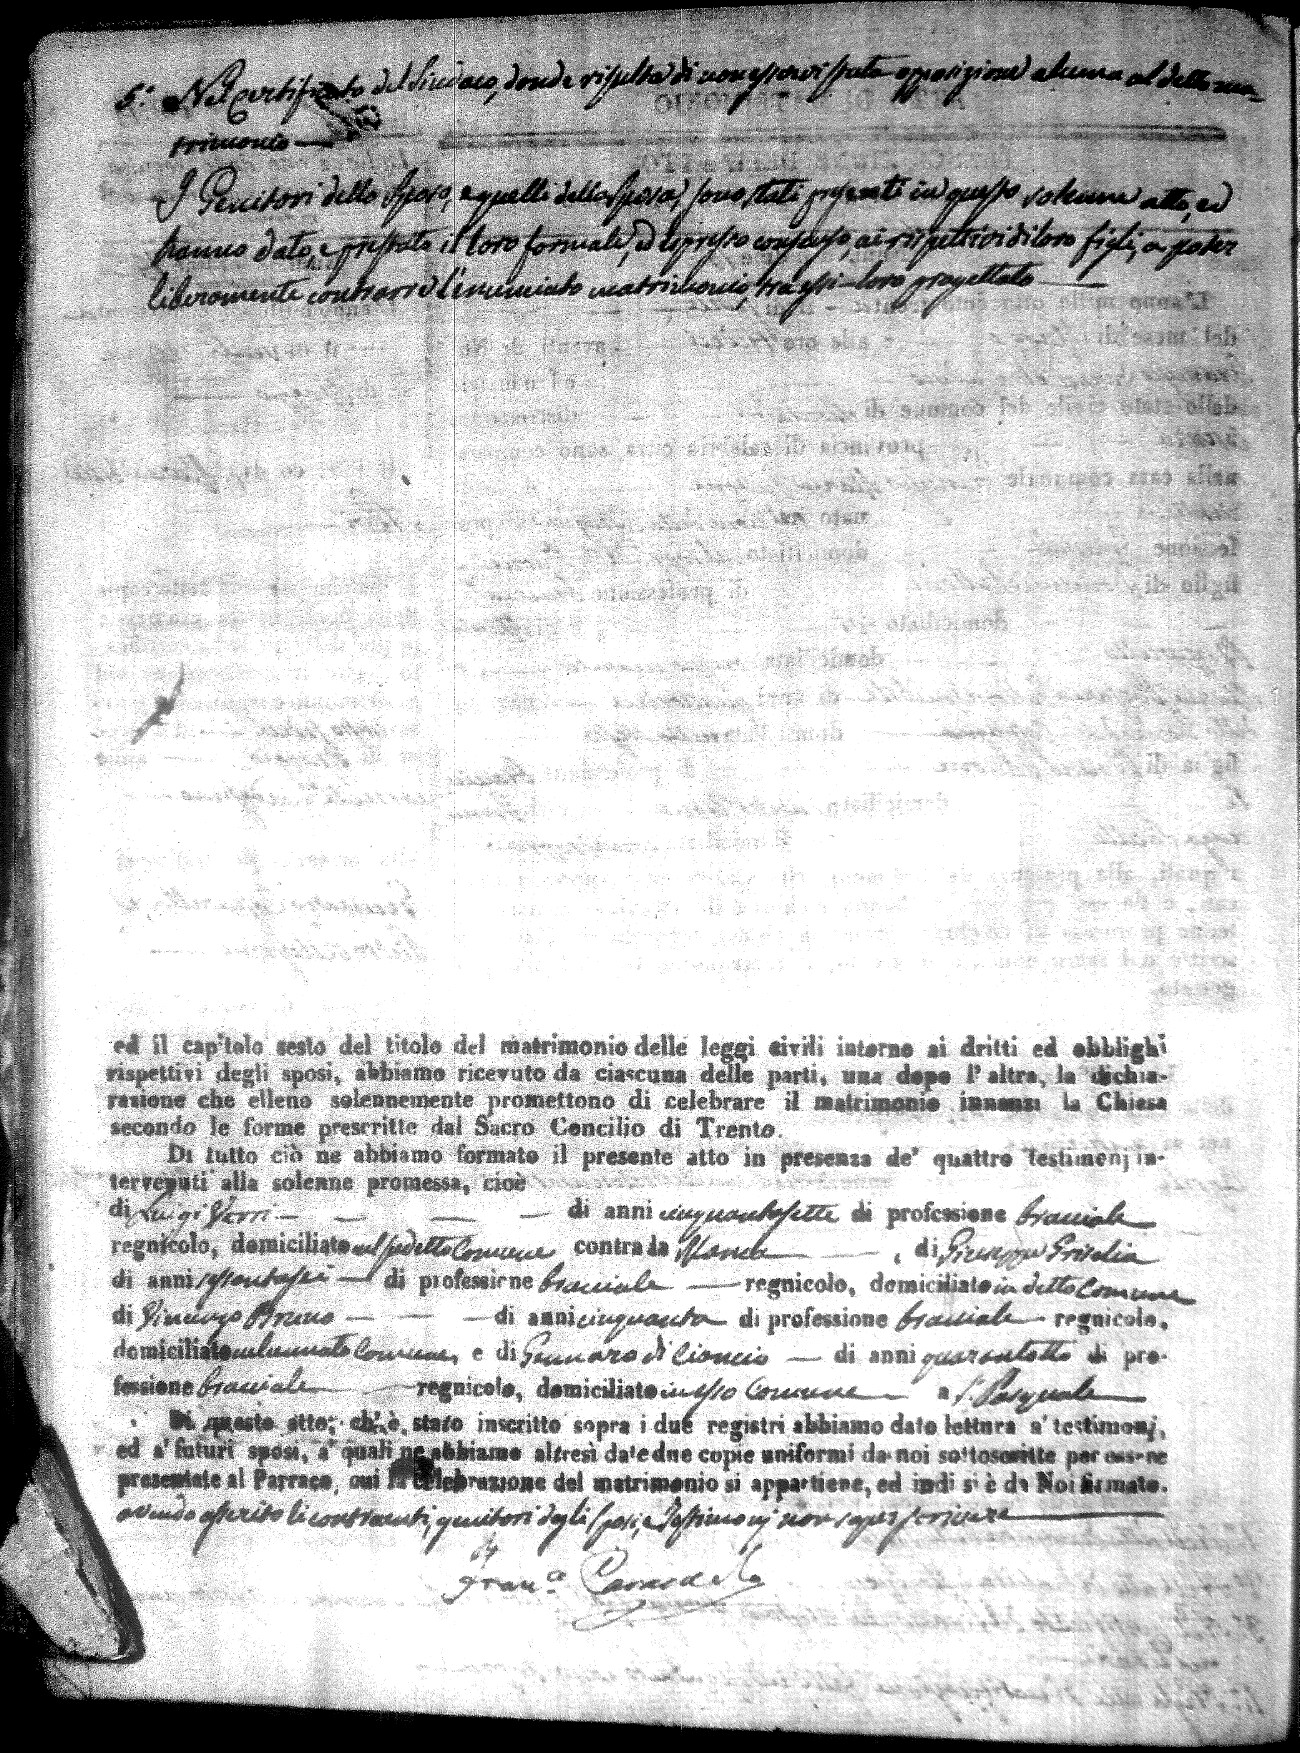 6.° Nel certificato del Sindaco, donde risulta di non esservi stata opposizione alcuna al detto ma-
trimonio —
I Genitori dello Sposo, e quelli della Sposa, sono stati presenti in questo solenne atto, ed
hanno dato, e prestato il loro formale, ed espresso consenso, ai rispettivi di loro figli, a poter
liberamente contrarre l'enunciato matrimonio, tra essi loro progettato —
ed il capitolo sesto del titolo del matrimonio delle leggi civili intorno ai dritti ed obblighi
rispettivi degli sposi, abbiamo ricevuto da ciascuna delle parti, una dopo l'altra, la dichia-
razione che elleno solennemente promettono di celebrare il matrimonio innanzi la Chiesa
secondo le forme prescritte dal Sacro Concilio di Trento.
Di tutto ciò ne abbiamo formato il presente atto in presenza de' quattro testimonj in-
tervenuti alla solenne promessa, cioè
di Luigi Verri — di anni cinquantasette di professione bracciale
regnicolo, domiciliato nel predetto Comune contrada Manca —, di Giuseppe Grisolia
di anni — di professione bracciale — regnicolo, domiciliato in detto Comune
di Vincenzo Bruno — di anni cinquanta di professione bracciale regnicolo,
domiciliato Comune, e di Gennaro di Cioncio — di anni quarantotto di pro-
fessione bracciale — regnicolo, domiciliato in esso Comune a S. Pasquale
Di questo atto, ch'è stato inscritto sopra i due registri abbiamo dato lettura a' testimonj,
ed a' futuri sposi, a' quali ne abbiamo altresì date due copie uniformi da noi sottoscritte per essere
presentate al Parroco, cui la celebrazione del matrimonio si appartiene, ed indi s'è da Noi firmato.
avendo asserito li contraenti, genitori degli sposi, e Testimonj non saper scrivere
Fran.co